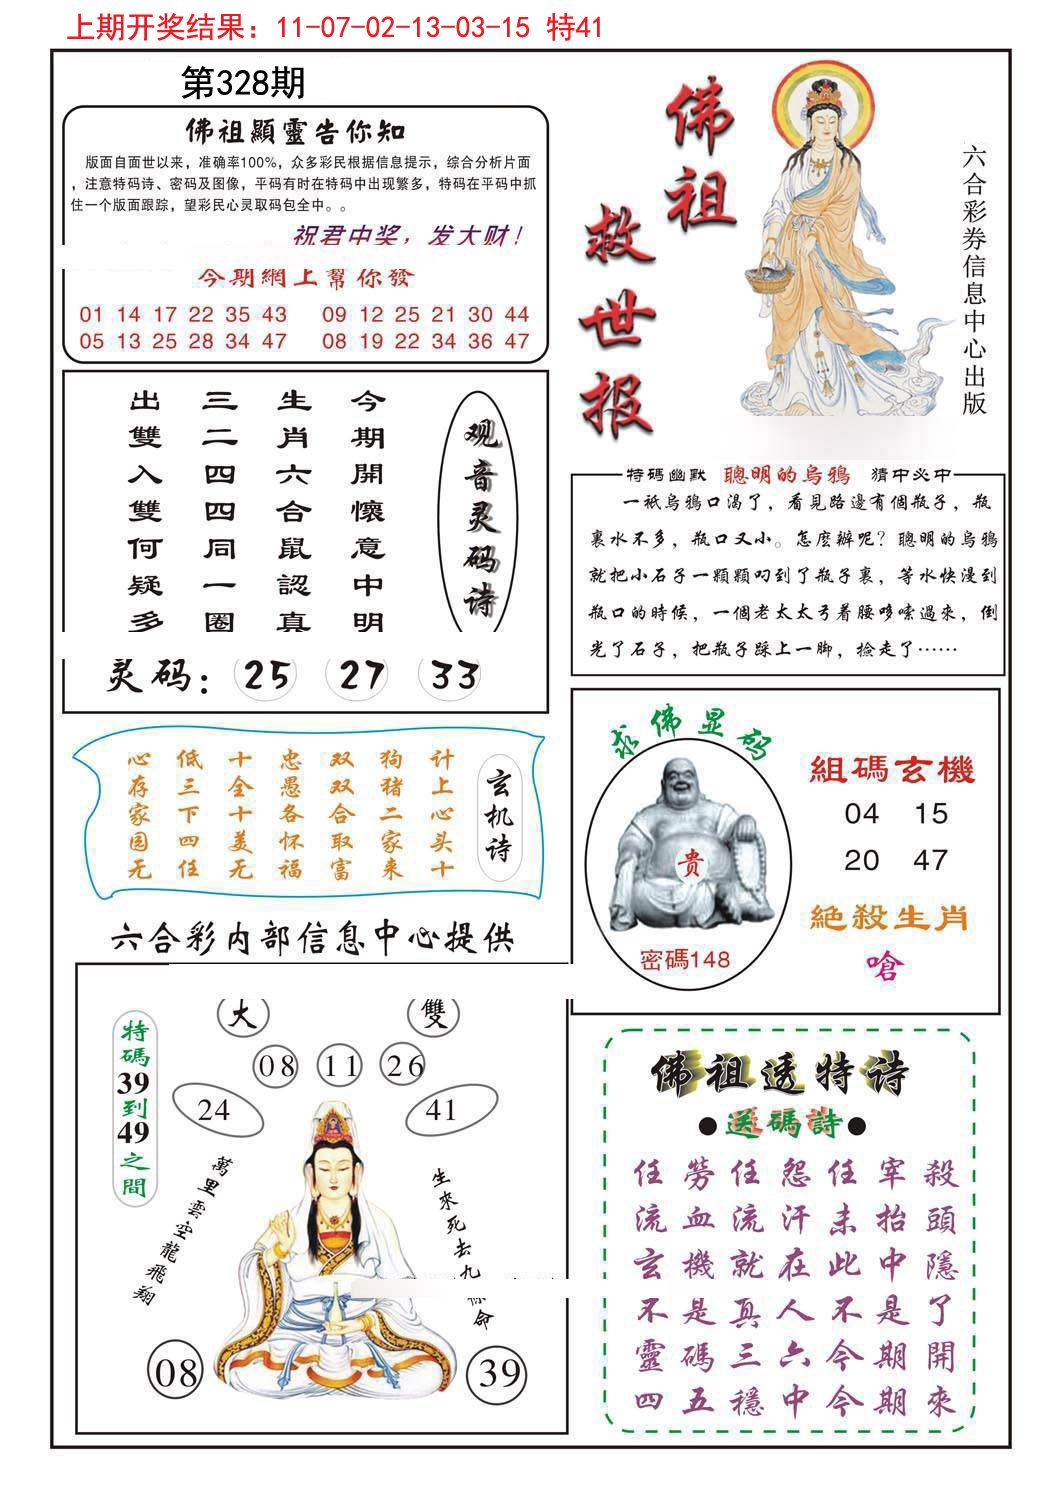 上期开奖结果：11-07-02-13-03-15 特41
第328期
佛祖顯靈告你知
版面自面世以来，准确率100%，众多彩民根据信息提示，综合分析片面
，注意特码诗、密码及图像，平码有时在特码中出现繁多，特码在平码中抓
住一个版面跟踪，望彩民心灵取码包全中。。
祝君中奖，发大财！
今期網上幫你發
01 14 17 22 35 43 09 12 25 21 30 44
05 13 25 28 34 47 08 19 22 34 36 47
佛祖
救世报
六合彩券信息中心出版
观音灵码诗
今期開懷意中明
生肖六合鼠認真
三二四四同一圈
出雙入雙何疑多
灵码：25 27 33
特碼幽默 聰明的烏鴉 猜中必中
一衹烏鴉口渴了，看見路邊有個瓶子，瓶
裏水不多，瓶口又小。怎麽辦呢？聰明的烏鴉
就把小石子一顆顆叼到了瓶子裏，等水快漫到
瓶口的時候，一個老太太弓着腰哆嗦過來，倒
光了石子，把瓶子踩上一脚，撿走了……
玄机诗
计上心头十
狗猪二家来
双双合取富
忠愚各怀福
十全十美无
低三下四任
心存家园无
求佛显码
贵
密碼148
組碼玄機
04 15
20 47
絕殺生肖
嗆
六合彩内部信息中心提供
大 雙
08 11 26
24 41
特碼39到49之間
萬里雲空龍飛翔
生來死去九
命
08 39
佛祖透特诗
●送碼詩●
任勞任怨任宰殺
流血流汗未抬頭
玄機就在此中隱
不是真人不是了
靈碼三六今期開
四五穩中今期來